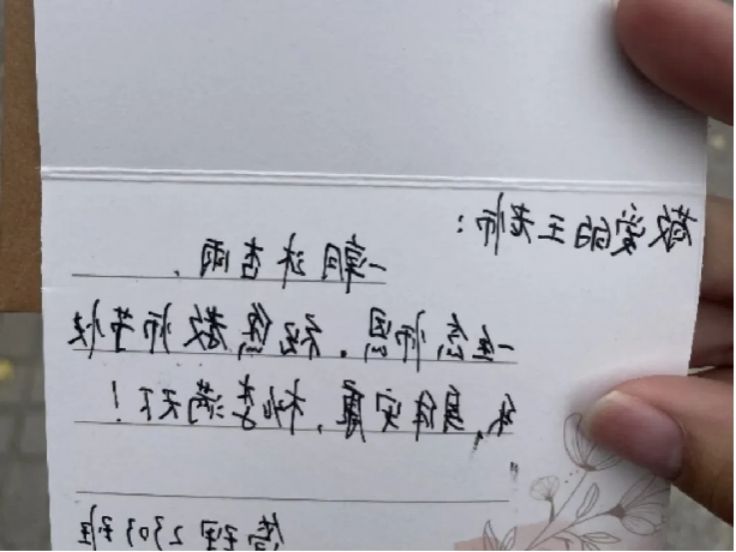 敬爱的王老师：
一朝沐杏雨，
一生念师恩。祝您教师节快
乐，身体安康，桃李满天下！
管理2303班